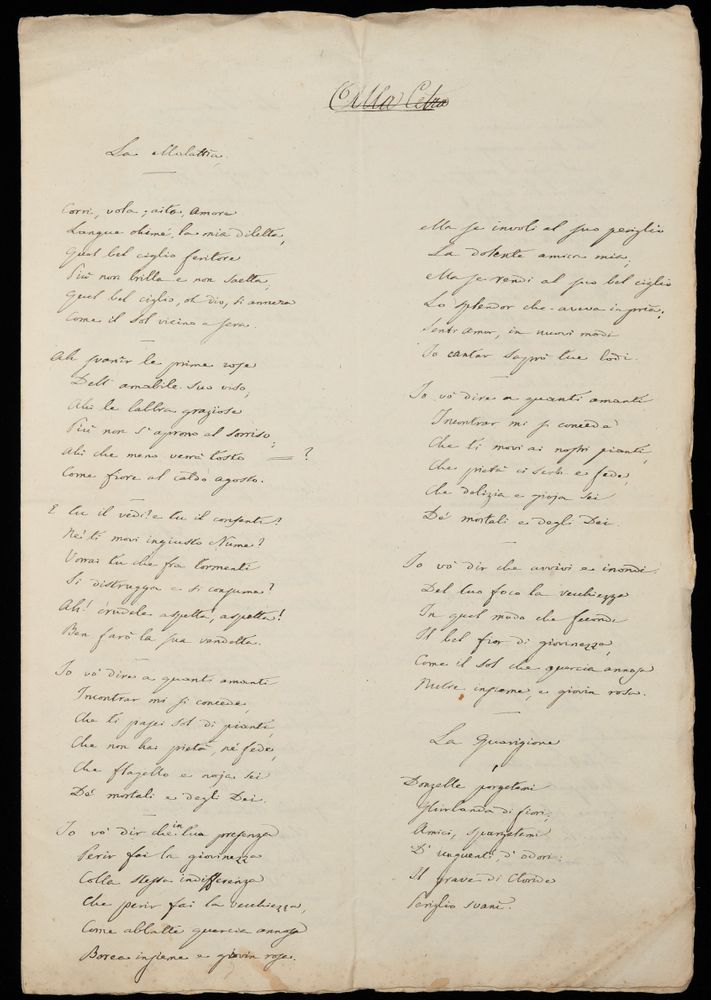 Alla Cetra
La Malattia.
Corri, vola, aita, Amore
Langue ohimè, la mia diletta,
Quel bel ciglio feritore
Più non brilla e non saetta,
Quel bel ciglio, oh dio, si annera
Come il Sol vicino a sera.
Ah svanir le prime rose
Dell' amabile suo viso,
Ahi le labbra graziose
Più non s'aprono al sorriso,
Ahi che meno verrà tosto = ?
Come fiore al caldo agosto.
E tu il vedi? e tu il consenti?
Nè ti movi ingiusto Nume?
Vorrai tu che fra tormenti
Si distrugga e si consume?
Ah! crudele aspetta, aspetta!
Ben farò la sua vendetta.
Io vo' dire a quanti amanti
Incontrar mi si concede,
Che ti pasci sol di pianti,
Che non hai pietà, nè fede,
Che flagello e noja sei
De' mortali e degli Dei.
Io vo' dir che in tua presenza
Perir fai la giovinezza
Colla stessa indifferenza
Che perir fai la vecchiezza,
Come abbatte quercia annosa
Borea insieme e giovin rosa.
Ma se involi al suo periglio
La dolente amica mia,
Ma se rendi al suo bel ciglio
Lo splendor che aveva in pria;
Senti Amor, in nuovi modi
Io cantar saprò tue lodi.
Io vo' dire a quanti amanti
Incontrar mi si conceda
Che ti movi ai nostri pianti,
Che pietà ci serbi e fede,
Che delizia e gioja sei
De' mortali e degli Dei.
Io vo' dir che avvivi e inondi
Del tuo foco la vecchiezza
In quel modo che fecondi
Il bel fior di giovinezza,
Come il Sol che quercia annosa
Nutre insieme, e giovin rosa.
La Guarigione
Donzelle porgetemi
Ghirlanda di fiori,
Amici, spargetemi
D' unguenti, d' odori:
Il grave di Cloride
Periglio svanì.